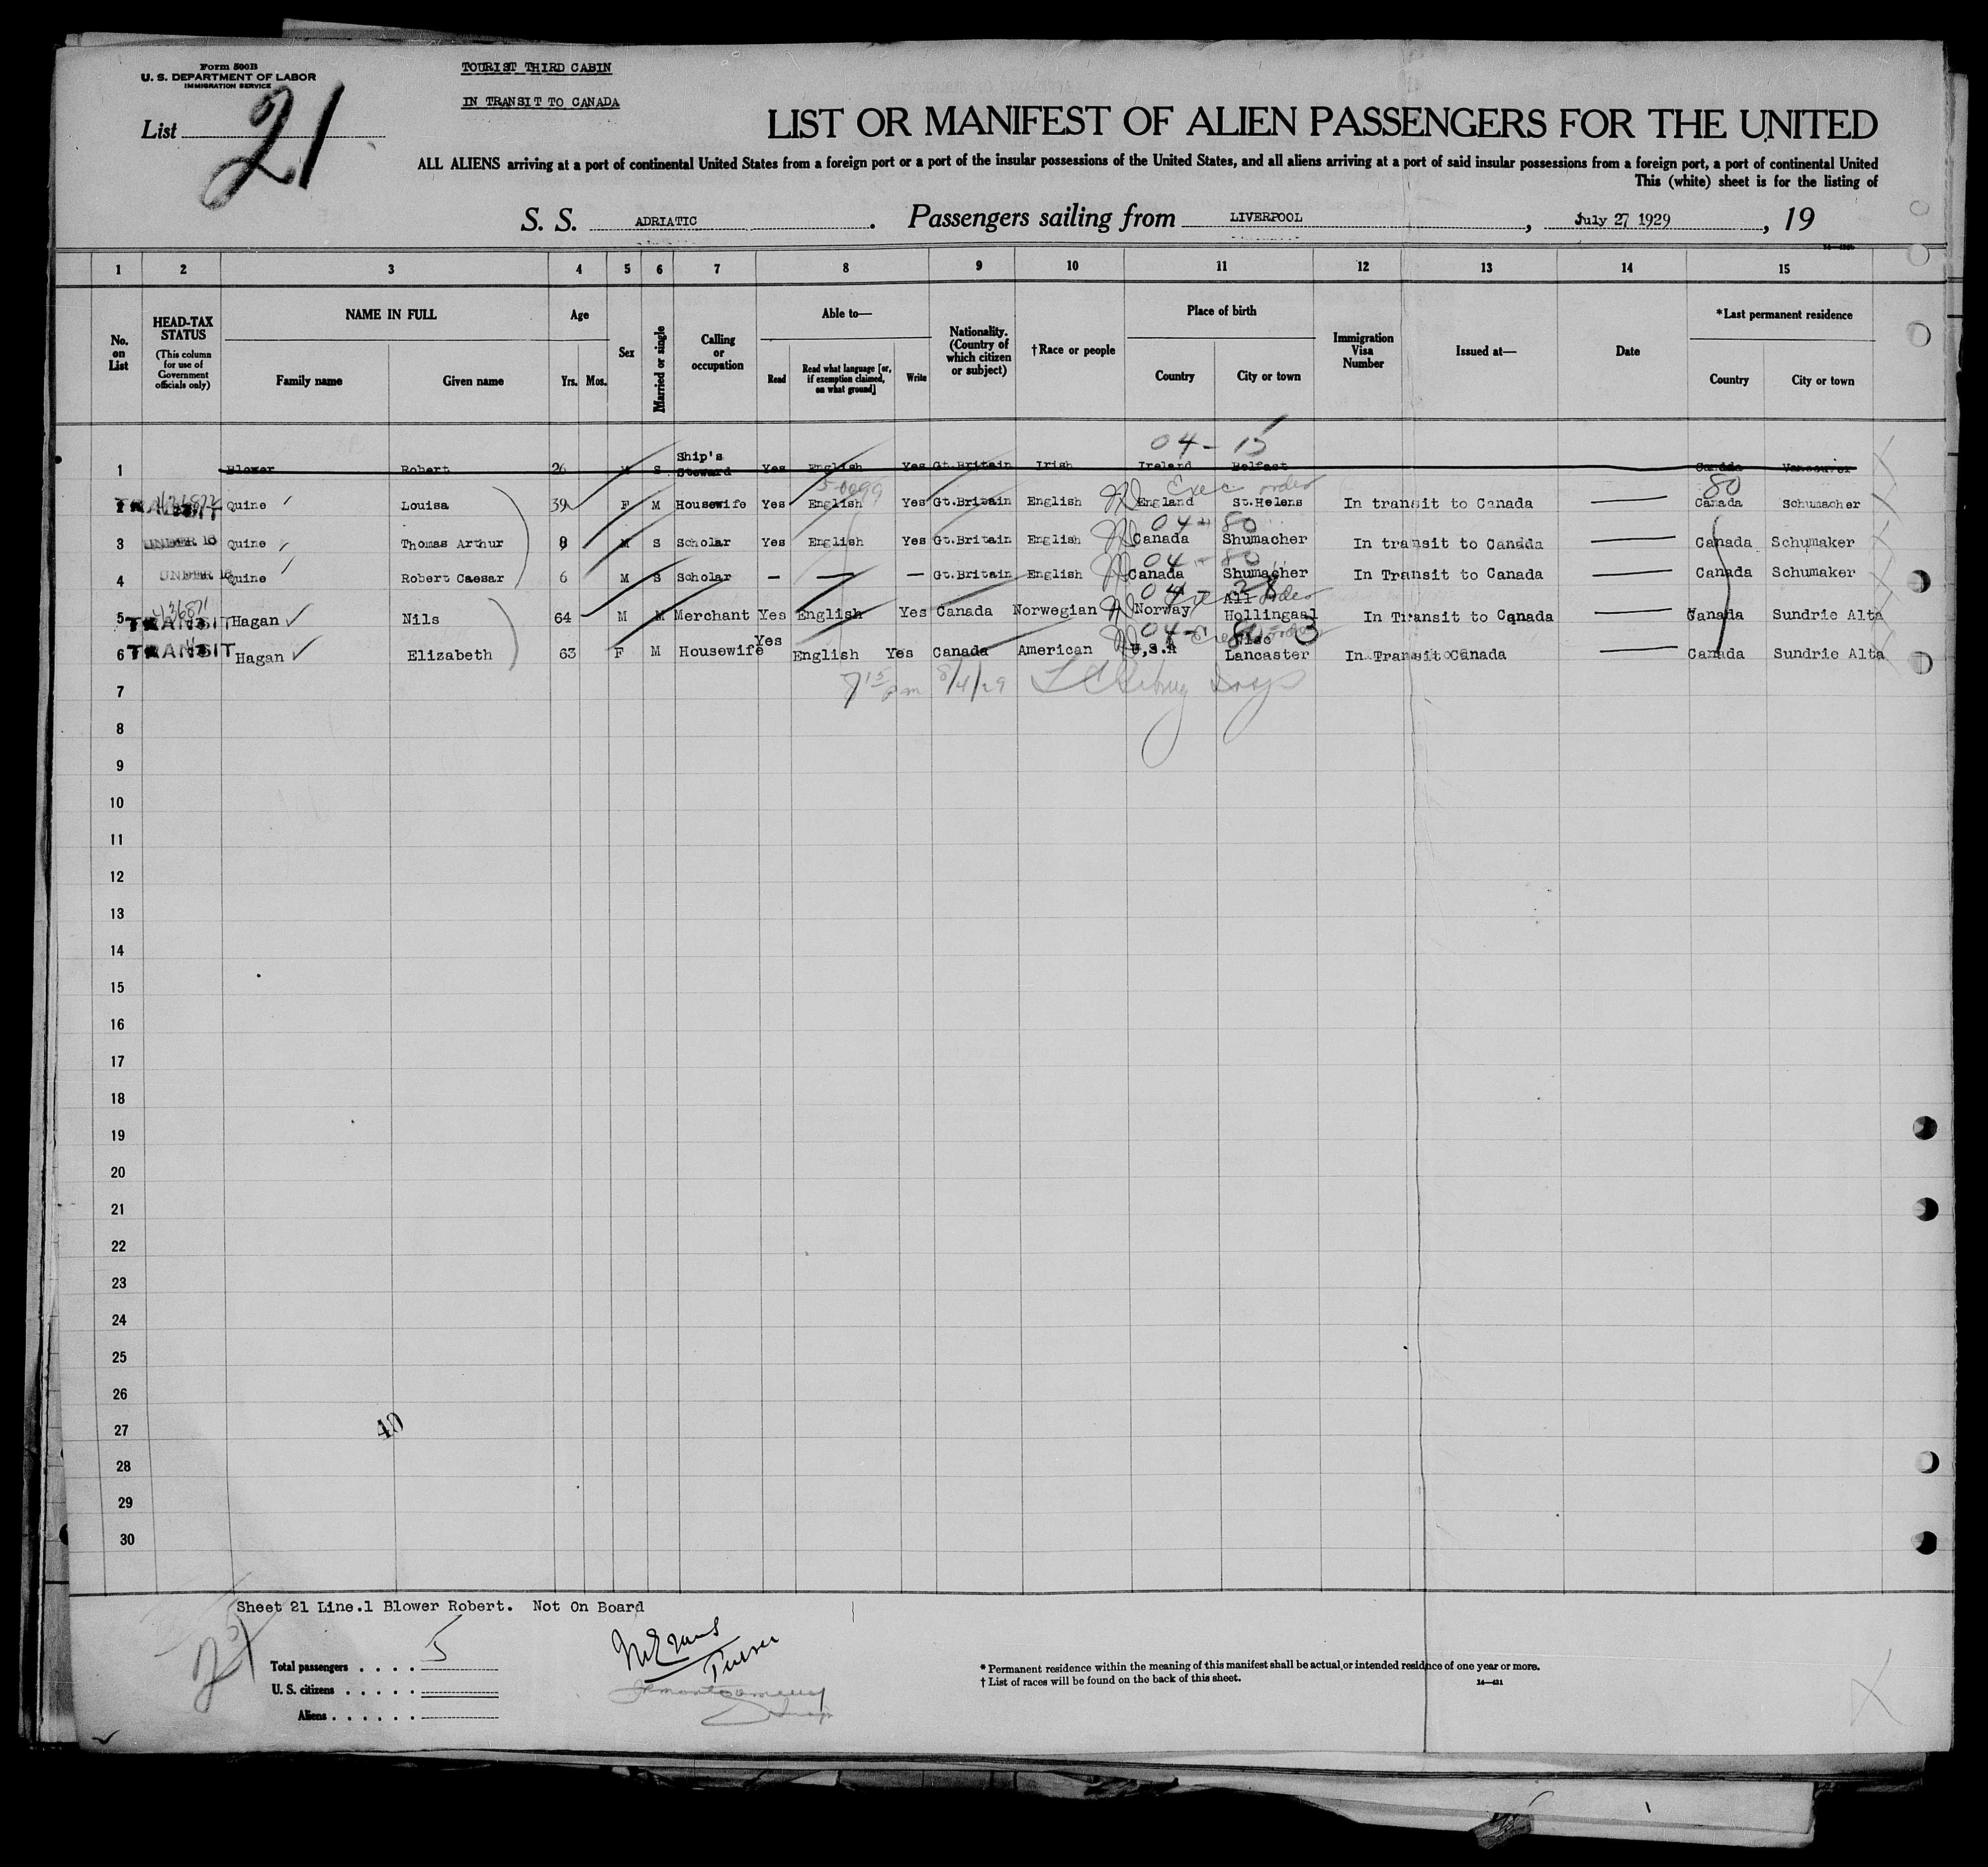 Form 500B
U. S. DEPARTMENT OF LABOR
IMMIGRATION SERVICE
TOURIST THIRD CABIN
IN TRANSIT TO CANADA
List 21
LIST OR MANIFEST OF ALIEN PASSENGERS FOR THE UNITED
ALL ALIENS arriving at a port of continental United States from a foreign port or a port of the insular possessions of the United States, and all aliens arriving at a port of said insular possessions from a foreign port, a port of continental United
This (white) sheet is for the listing of
S. S. ADRIATIC. Passengers sailing from LIVERPOOL, July 27 1929, 19
1 2 3 4 5 6 7 8 9 10 11 12 13 14 15
No. on List
HEAD-TAX STATUS
(This column for use of Government officials only)
NAME IN FULL
Family name Given name
Age
Yrs. Mos.
Sex
Married or single
Calling or occupation
Able to—
Read
Read what language [or, if exemption claimed, on what ground]
Write
Nationality. (Country of which citizen or subject)
†Race or people
Place of birth
Country City or town
Immigration Visa Number
Issued at—
Date
*Last permanent residence
Country City or town
04- 15
1 Blower Robert 26 M S Ship's Steward Yes English Yes Gt.Britain Irish Ireland Belfast Canada Vancouver
5-0099 Exec order 80
2 TRANSIT Quine Louisa 39 F M Housewife Yes English Yes Gt.Britain English England St.Helens In transit to Canada Canada Schumacher
04- 80
3 UNDER 16 Quine Thomas Arthur 9 M S Scholar Yes English Yes Gt.Britain English Canada Shumacher In transit to Canada Canada Schumaker
04-80
4 UNDER 16 Quine Robert Caesar 6 M S Scholar - — - Gt.Britain English Canada Shumacher In Transit to Canada Canada Schumaker
04-
5 TRANSIT Hagan Nils 64 M M Merchant Yes English Yes Canada Norwegian Norway All Hollingaal In Transit to Canada Canada Sundrie Alta
04- 3
6 TRANSIT Hagan Elizabeth 63 F M Housewife Yes English Yes Canada American U.S.A Wisc Lancaster In Transit Canada Canada Sundrie Alta
7 7 15 pm 8/4/29
8
9
10
11
12
13
14
15
16
17
18
19
20
21
22
23
24
25
26
27
40
28
29
30
Sheet 21 Line.1 Blower Robert. Not On Board
Total passengers . . . . 5
U. S. citizens . . . . .
Aliens . . . . . .
* Permanent residence within the meaning of this manifest shall be actual or intended residence of one year or more.
† List of races will be found on the back of this sheet.
14—431